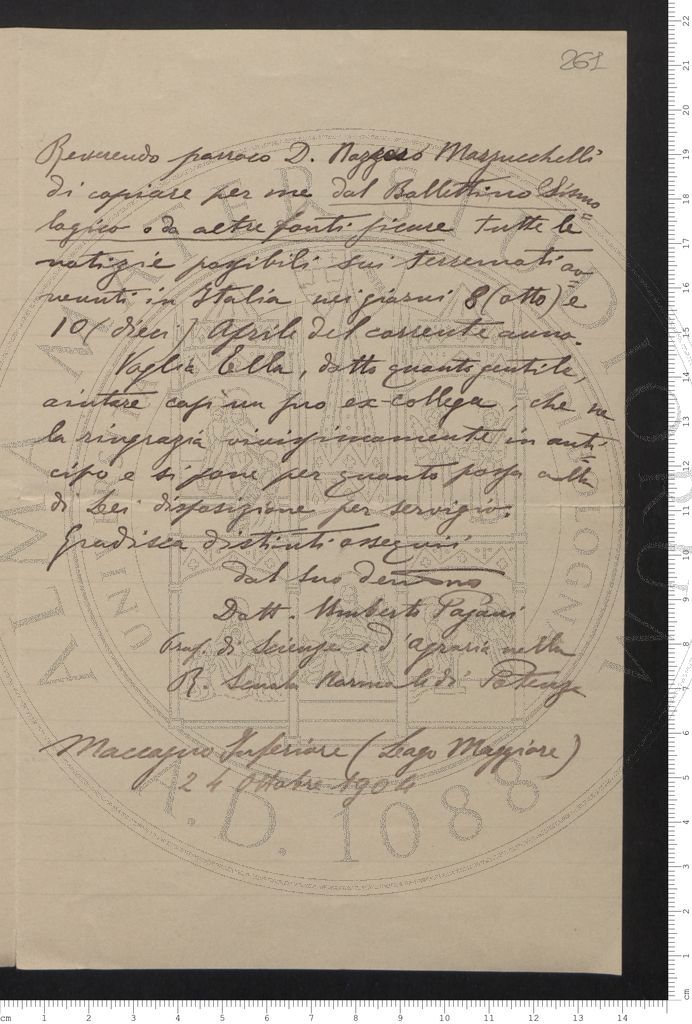 261
Reverendo parroco D. Mazzucchelli
di copiare per me dal Bollettino Sismo=
logico o da altre fonti sicure tutte le
notizie possibili sui terremoti av=
venuti in Italia nei giorni 8 (otto) e
10 (dieci) Aprile del corrente anno.
Voglia Ella, dotto quanto gentile,
aiutare così un suo ex-collega, che ne
la ringrazia vivissimamente in anti=
cipo e si pone per quanto possa alla
di Lei disposizione per servigio.
Gradisca distinti ossequii
dal suo devmo
Dott. Umberto Pagani
Prof. di Scienze e d'Agraria nella
R. Scuola Normale di Potenza
Maccagno Inferiore (Lago Maggiore)
24 Ottobre 1904
ALMA MATER STUDIORUM
A.D. 1088